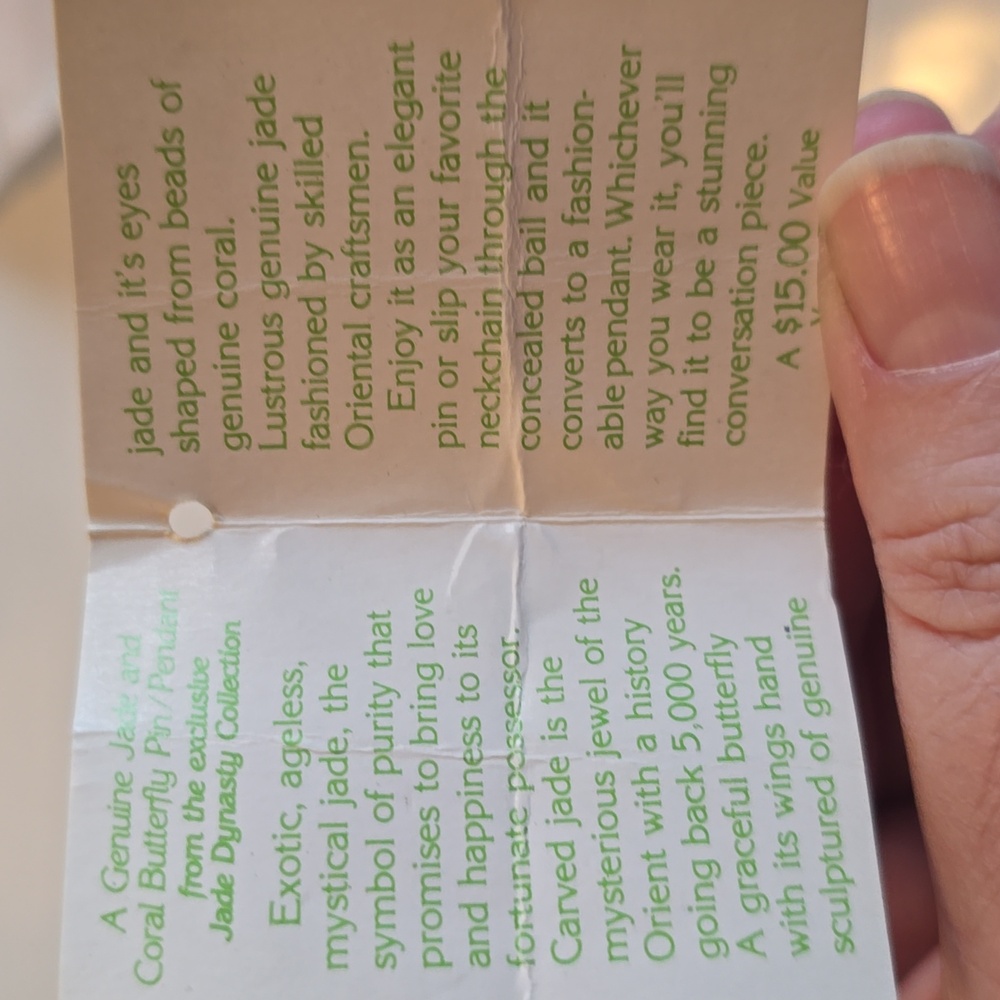 A Genuine Jade and
Coral Butterfly Pin/Pendant
from the exclusive
Jade Dynasty Collection
Exotic, ageless,
mystical jade, the
symbol of purity that
promises to bring love
and happiness to its
fortunate possessor.
Carved jade is the
mysterious jewel of the
Orient with a history
going back 5,000 years.
A graceful butterfly
with its wings hand
sculptured of genuine
jade and it's eyes
shaped from beads of
genuine coral.
Lustrous genuine jade
fashioned by skilled
Oriental craftsmen.
Enjoy it as an elegant
pin or slip your favorite
neckchain through the
concealed bail and it
converts to a fashion-
able pendant. Whichever
way you wear it, you'll
find it to be a stunning
conversation piece.
A $15.00 Value